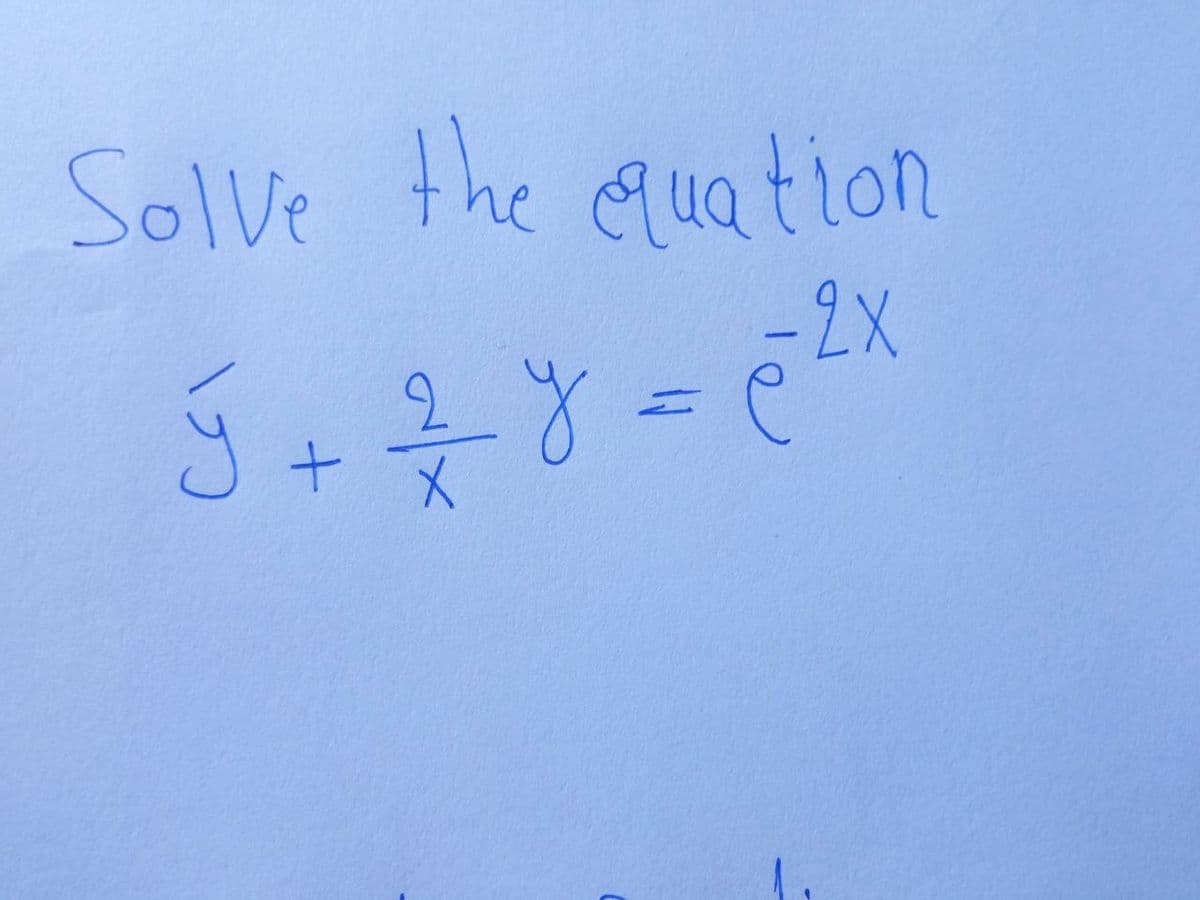 Solve the equation
y' + 2/x y = e^-2x